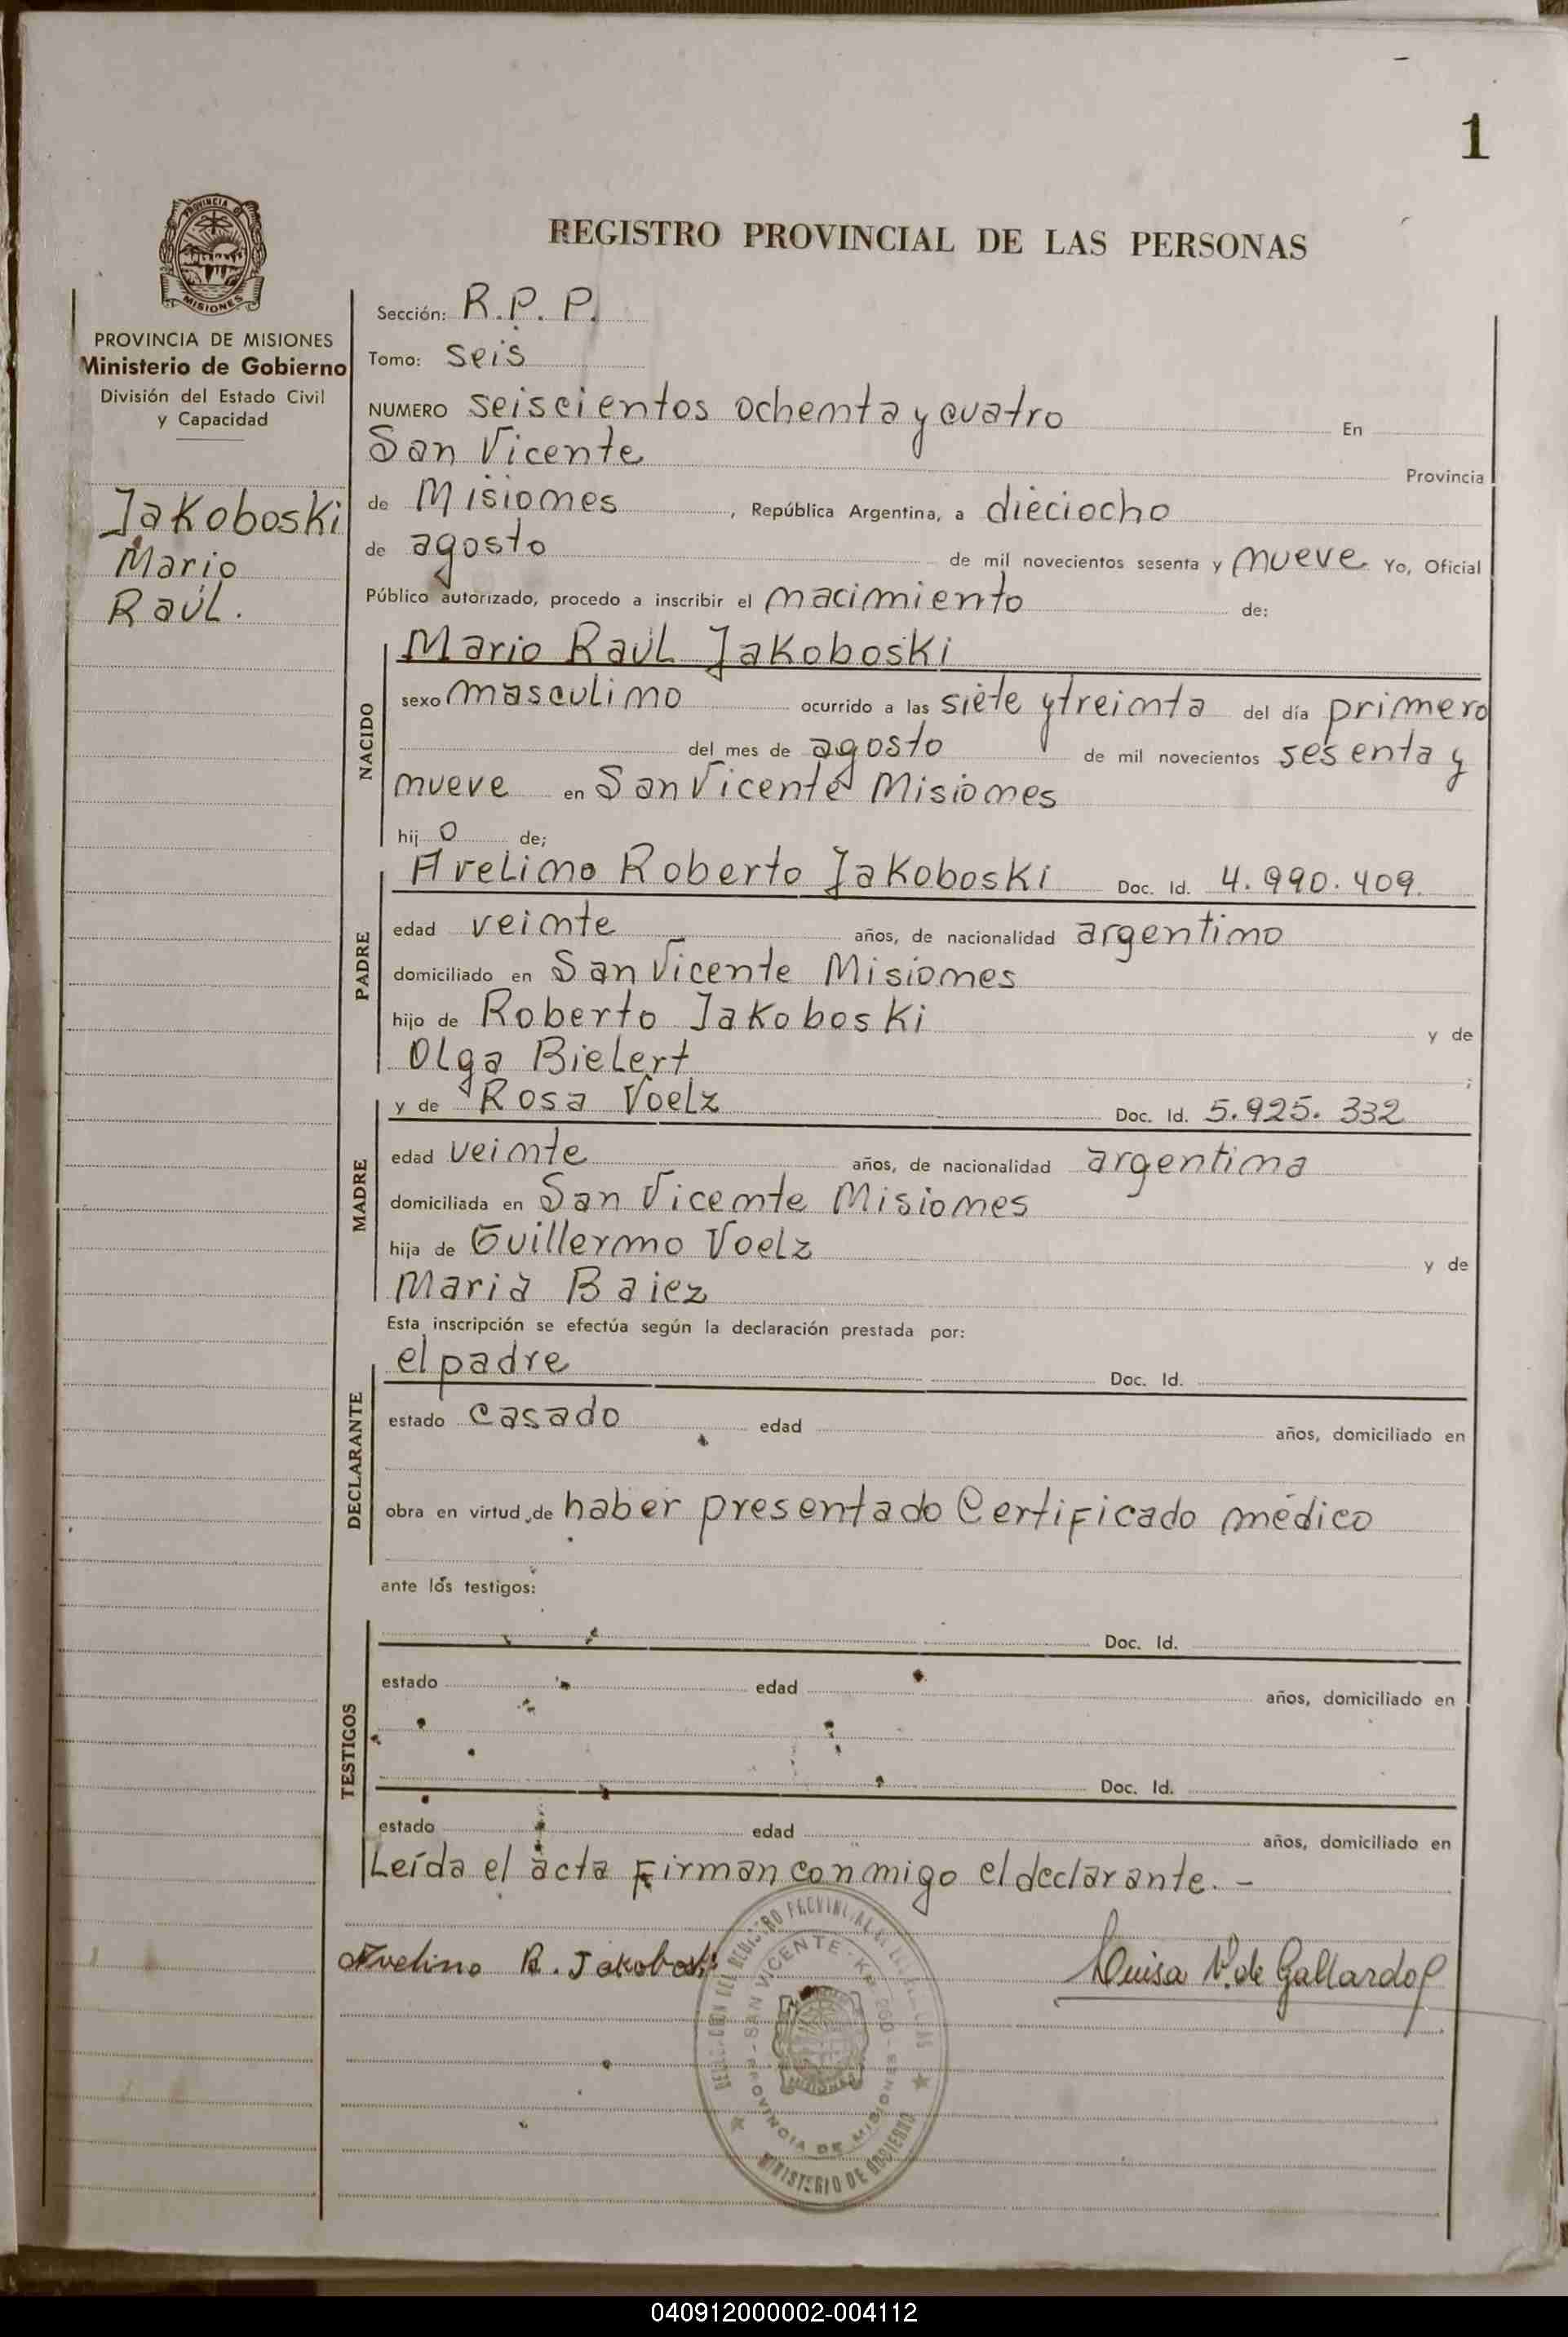 1
PROVINCIA DE
MISIONES
REGISTRO PROVINCIAL DE LAS PERSONAS
PROVINCIA DE MISIONES
Ministerio de Gobierno
División del Estado Civil
y Capacidad
Jakoboski
Mario
Raúl.
Sección: R.P.P.
Tomo: seis
NUMERO seiscientos ochenta y cuatro En
San Vicente Provincia
de Misiones, República Argentina, a dieciocho
de agosto de mil novecientos sesenta y nueve Yo, Oficial
Público autorizado, procedo a inscribir el nacimiento de:
NACIDO
Mario Raúl Jakoboski
sexo masculino ocurrido a las siete y treinta del día primero
del mes de agosto de mil novecientos sesenta y
nueve en San Vicente Misiones
hij o de;
PADRE
Avelino Roberto Jakoboski Doc. Id. 4.990.409.
edad veinte años, de nacionalidad argentino
domiciliado en San Vicente Misiones
hijo de Roberto Jakoboski y de
Olga Bielert ;
MADRE
y de Rosa Voelz Doc. Id. 5.925.332
edad veinte años, de nacionalidad argentina
domiciliada en San Vicente Misiones
hija de Guillermo Voelz y de
María Baiez
Esta inscripción se efectúa según la declaración prestada por:
DECLARANTE
el padre Doc. Id.
estado casado edad años, domiciliado en
obra en virtud de haber presentado Certificado médico
ante los testigos:
TESTIGOS
Doc. Id.
estado edad años, domiciliado en
Doc. Id.
estado edad años, domiciliado en
Leída el acta firman conmigo el declarante.-
Avelino R. Jakoboski
Luisa V. de Gallardo
REGISTRO PROVINCIAL DE LAS
SAN VICENTE - KM
PROVINCIA DE MISIONES
MINISTERIO DE GOBIERNO
040912000002-004112